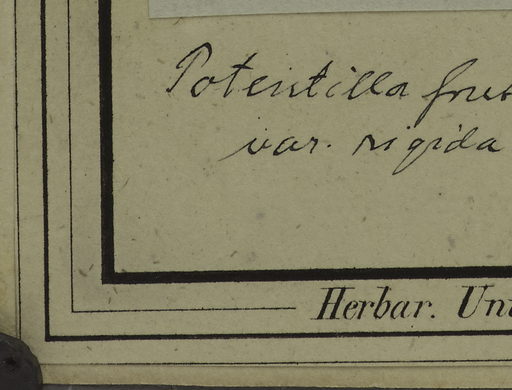 Potentilla frut
var. rigida
Herbar. Uni